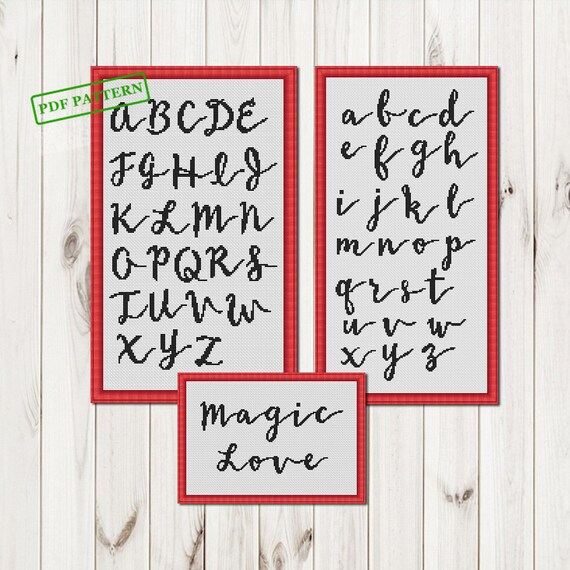 PDF PATTERN
A B C D E
F G H I J
K L M N
O P Q R S
T U V W
X Y Z
a b c d
e f g h
i j k l
m n o p
q r s t
u v w
x y z
Magic
Love